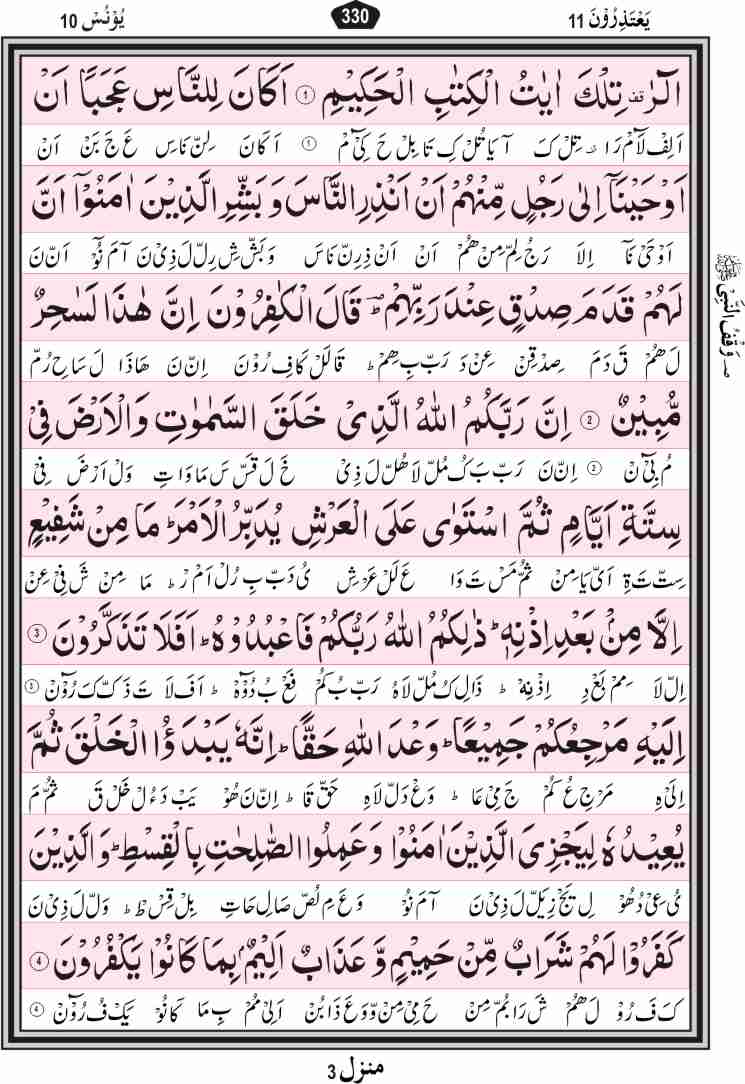 یَعْتَذِرُوْنَ 11 330 یُوْنُسْ 10
الٓرٰ قف تِلْكَ اٰیٰتُ الْكِتٰبِ الْحَكِیْمِ ۝1 اَكَانَ لِلنَّاسِ عَجَبًا اَنْ
اَلِفْ لَآمْ رَا ۔ تِلْ كَ آ یَا تُلْ كِ تَا بِلْ حَ كِیْٓ مْ 1 اَ كَانَ لِنّ نَاسِ عَ جَ بَنْ اَنْ
اَوْحَیْنَاۤ اِلٰی رَجُلٍ مِّنْهُمْ اَنْ اَنْذِرِ النَّاسَ وَ بَشِّرِ الَّذِیْنَ اٰمَنُوْۤا اَنَّ
اَوْ حَیْ نَآ اِلَا رَ جُ لِمّ مِنْ هُمْ اَنْ اَنْ ذِرِنّ نَاسَ وَ بَشّ شِ رِلّ لَ ذِیْ نَ آ مَ نُوْٓ اَنّ نَ
لَهُمْ قَدَمَ صِدْقٍ عِنْدَ رَبِّهِمْ ؕ قَالَ الْكٰفِرُوْنَ اِنَّ هٰذَا لَسٰحِرٌ
لَ هُمْ قَ دَ مَ صِدْ قِنْ عِنْ دَ رَبّ بِ هِمْ ط قَا لَلْ كَافِ رُوْنَ اِنّ نَ هَا ذَا لَ سَاحِ رُمّ
مُّبِیْنٌ ۝2 اِنَّ رَبَّكُمُ اللّٰهُ الَّذِیْ خَلَقَ السَّمٰوٰتِ وَالْاَرْضَ فِیْ
مُ بِیْٓ نْ 2 اِنّ نَ رَبّ بَ كُ مُلّ لَا هُلّ لَ ذِیْ خَ لَ قَسّ سَ مَا وَا تِ وَلْ اَرْ ضَ فِیْ
سِتَّةِ اَیَّامٍ ثُمَّ اسْتَوٰی عَلَی الْعَرْشِ یُدَبِّرُ الْاَمْرَ ؕ مَا مِنْ شَفِیْعٍ
سِتّ تَ ةِ اَیّ یَا مِنْ ثُمّ مَسْ تَ وَا عَ لَلْ عَرْشِ یُ دَبّ بِ رُلْ اَمْ رَ ط مَا مِنْ شَ فِیْ عِنْ
اِلَّا مِنْۢ بَعْدِ اِذْنِهٖ ؕ ذٰلِكُمُ اللّٰهُ رَبُّكُمْ فَاعْبُدُوْهُ ؕ اَفَلَا تَذَكَّرُوْنَ ۝3
اِلّ لَا مِمْ بَعْ دِ اِذْ نِهٖ ط ذَالِ كُ مُلّ لَاهُ رَبّ بُ كُمْ فَعْ بُ دُوْٓهْ ط اَ فَ لَا تَ ذَكّ كَ رُوْٓنْ 3
اِلَیْهِ مَرْجِعُكُمْ جَمِیْعًا ؕ وَعْدَ اللّٰهِ حَقًّا ؕ اِنَّهٗ یَبْدَؤُا الْخَلْقَ ثُمَّ
اِلَیْ هِ مَرْجِ عُ كُمْ جَ مِیْ عَا ط وَعْ دَلّ لَاهِ حَقّ قَا ط اِنّ نَ هُوْ یَبْ دَءُ لْ خَلْ قَ ثُمّ مَ
یُعِیْدُهٗ لِیَجْزِیَ الَّذِیْنَ اٰمَنُوْا وَ عَمِلُوا الصّٰلِحٰتِ بِالْقِسْطِ ؕ وَالَّذِیْنَ
یُ عِیْ دُ هُوْ لِ یَجْ زِ یَلّ لَ ذِیْ نَ آ مَ نُوْ وَ عَ مِ لُصّ صَا لِ حَاتِ بِلْ قِسْ طْ ط وَلّ لَ ذِیْ نَ
كَفَرُوْا لَهُمْ شَرَابٌ مِّنْ حَمِیْمٍ وَّ عَذَابٌ اَلِیْمٌۢ بِمَا كَانُوْا یَكْفُرُوْنَ ۝4
كَ فَ رُوْ لَ هُمْ شَ رَا بُمّ مِنْ حَ مِیْ مِنْ وّ وَ عَ ذَا بُنْ اَلِیْ مُمْ بِ مَا كَانُوْ یَكْ فُ رُوْٓنْ 4
وَقْفُ النَّبِیْ ﷺ
منزل 3